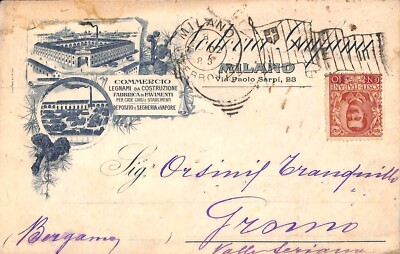 MILANO
MILANO
Via Paolo Sarpi, 23
COMMERCIO
LEGNAMI DA COSTRUZIONE
FABBRICA DI PAVIMENTI
PER CASE CIVILI E STABILIMENTI
DEPOSITO E SEGHERIA A VAPORE
POSTE ITALIANE
CENT. 10
Sig. Orsini Tranquillo
Gromo
Bergamo
Valle Seriana